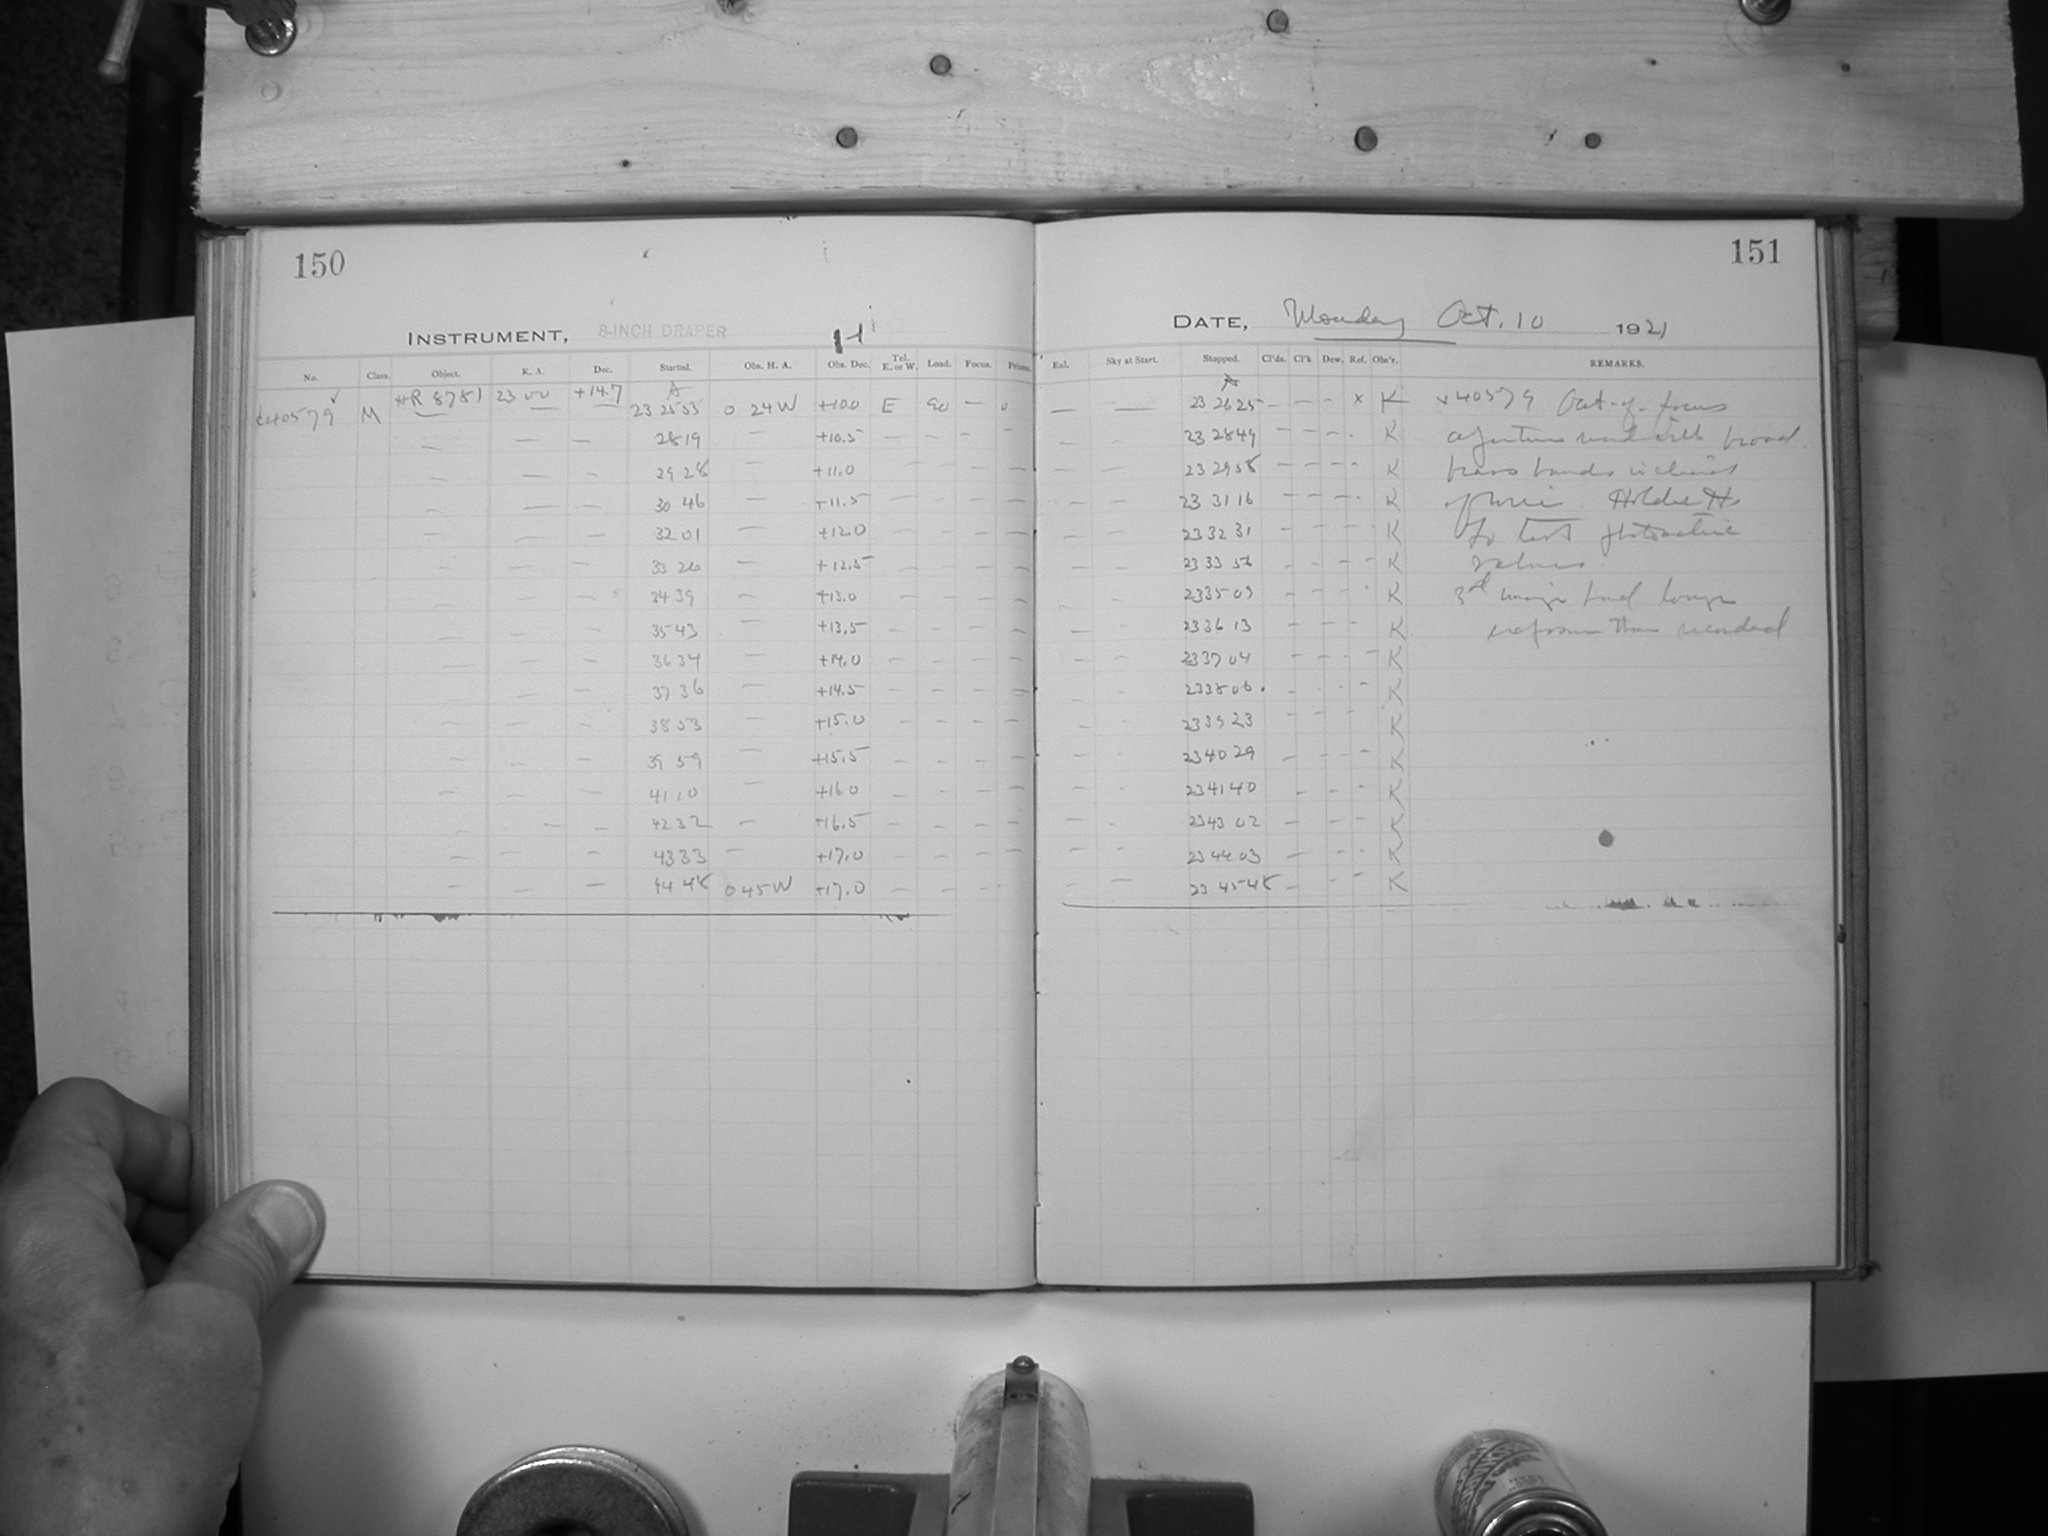 150
INSTRUMENT, 8-INCH DRAPER
No. Class. Object. R. A. Dec. Started. Obs. H. A. Obs. Dec. Tel. E. or W. Load. Focus. Prisms.
40579 M HR 8781 23 00 +14.7 23 25 55 0 24 W +10.0 E 90 — 0
— — — 28 19 — +10.5 — — — —
— — — 29 28 — +11.0 — — — —
— — — 30 46 — +11.5 — — — —
— — — 32 01 — +12.0 — — — —
— — — 33 26 — +12.5 — — — —
— — — 34 39 — +13.0 — — — —
— — — 35 43 — +13.5 — — — —
— — — 36 34 — +14.0 — — — —
— — — 37 36 — +14.5 — — — —
— — — 38 53 — +15.0 — — — —
— — — 39 59 — +15.5 — — — —
— — — 41 10 — +16.0 — — — —
— — — 42 32 — +16.5 — — — —
— — — 43 33 — +17.0 — — — —
— — — 44 48 0 45 W +17.0 — — —
151
DATE, Monday Oct. 10 1921
Exl. Sky at Start. Stopped. Cl'ds. Cl'k Dew. Ref. Obs'r. REMARKS.
— — 23 26 25 — — — x K x40579 Out-of-focus
— — 23 28 49 — — — . K
— — 23 29 58 — — — — K bands
— — 23 31 16 — — — . K
— — 23 32 31 — — — — K To test photometric
— — 23 33 56 — — — — K values
— — 23 35 09 — — — . K 3rd image had longer
— — 23 36 13 — — — K exposure than recorded
— — 23 37 04 — — — K
— — 23 38 06 K
— — 23 39 23 — — — K
— — 23 40 29 — — — K
— — 23 41 40 — — — K
— — 23 43 02 — — — K
— — 23 44 03 — — — K
— — 23 45 48 — — — K